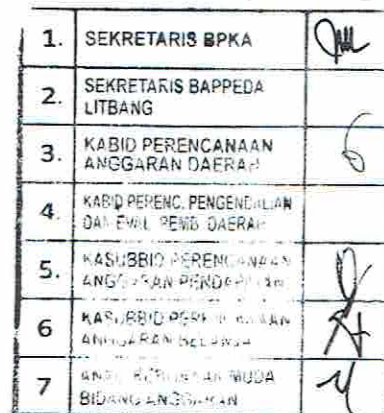 1. SEKRETARIS BPKA
2. SEKRETARIS BAPPEDA
LITBANG
3. KABID PERENCANAAN
ANGGARAN DAERAH
4. KABID PERENC. PENGENDALIAN
DAN EVAL. PEMB. DAERAH
5. KASUBBID PERENCANAAN
ANGGARAN PENDAPATAN
6 KASUBBID PERENCANAAN
ANGGARAN BELANJA
7 KEBIJAKAN MUDA
BIDANG ANGGARAN